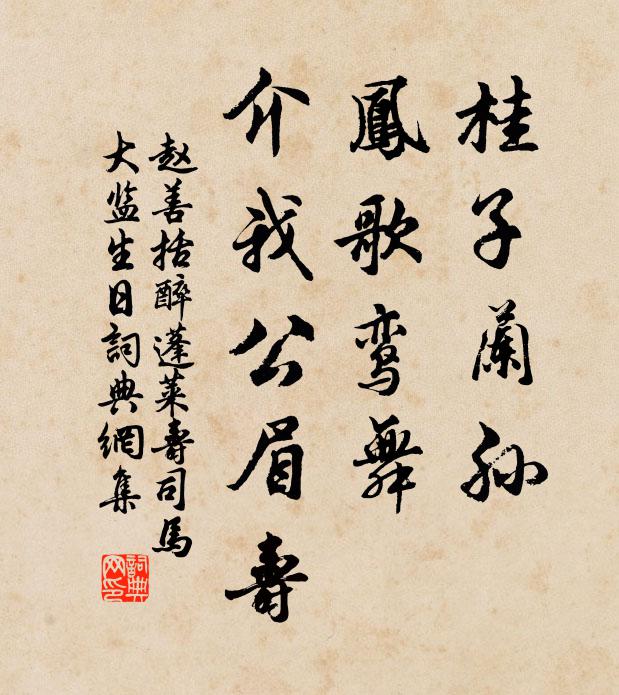 桂子蘭孙
鳳歌鸾舞
介我公眉壽
赵善括醉蓬莱壽司馬
大监生日詞典網集
詞典
网印